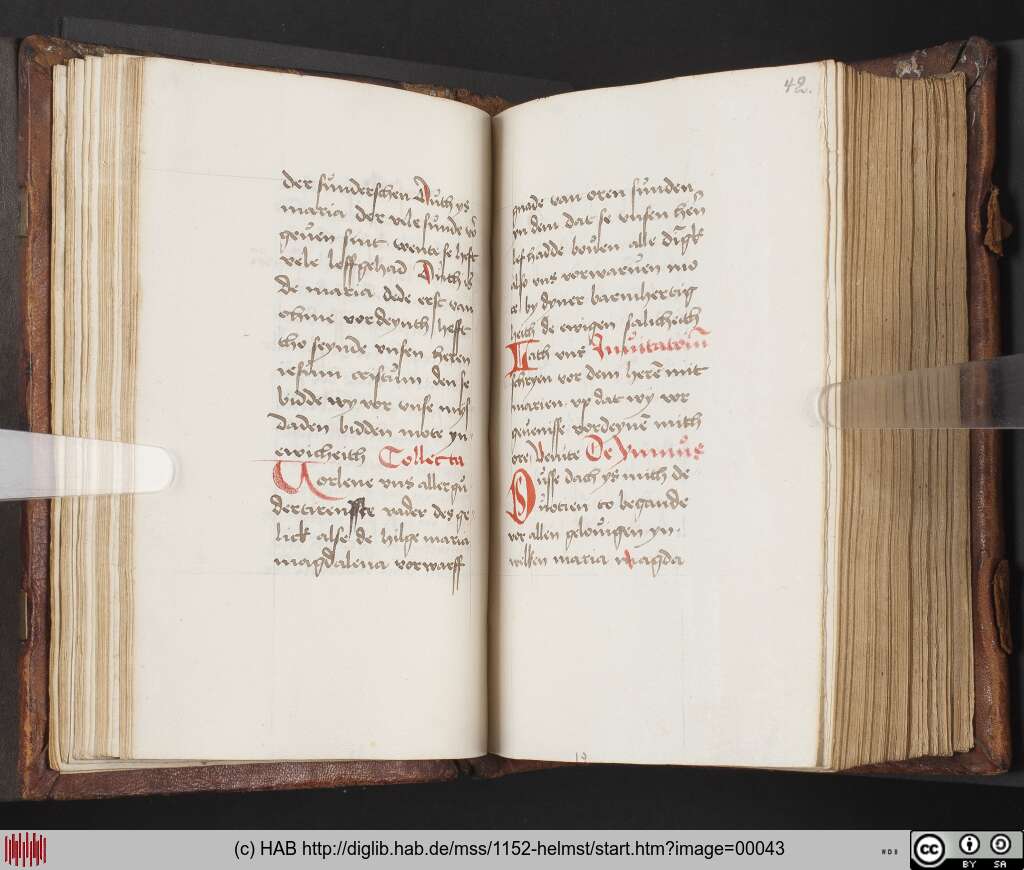 der sunderschen Duth ys
maria der vele sunde vor
geuen sint wente se hefft
vele leffgehad Duth is
de maria dede erst van
ohme vordeynth hefft
tho seynde vnsen heren
iesum cristum den se
bidde wy vor vnse mys
daden bidden mote yn
ewicheith Collecta
Vorlene vns aller gu
dertirenste vader des ge
lick alse de hilge maria
magdalena vorwarff
42.
gnade van oren sunden
yn dem dat se vnsen hern
leffhadde bouen alle dingk
also vns vorwaruen mo
te by dyner barmhertig
heith de ewigen salicheith
Lath vns Inuitatorium
schryen vor dem herē mit
marien vp dat wy vor
geuenisse vordeynē mith
ore Venite De Ymnus
Dusse dach ys mith de
uotien to begande
vor allen gelouigen yn
welken maria magda
(c) HAB http://diglib.hab.de/mss/1152-helmst/start.htm?image=00043
WDB
cc BY SA